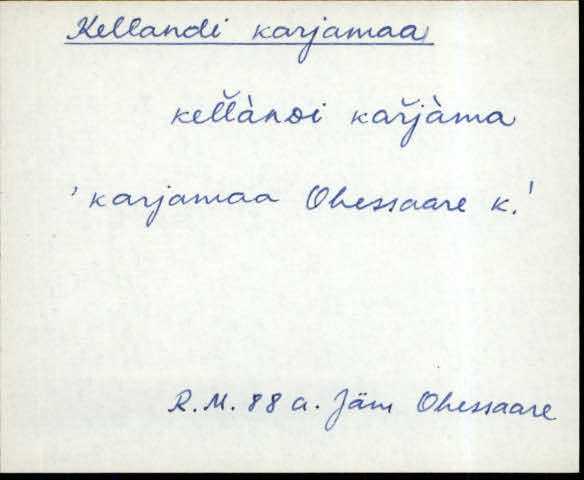 Kellandi karjamaa
kel̆lànᴅi kar̆jàma
'karjamaa Ohessaare k.'
R.M. 88 a. Jäm Ohessaare